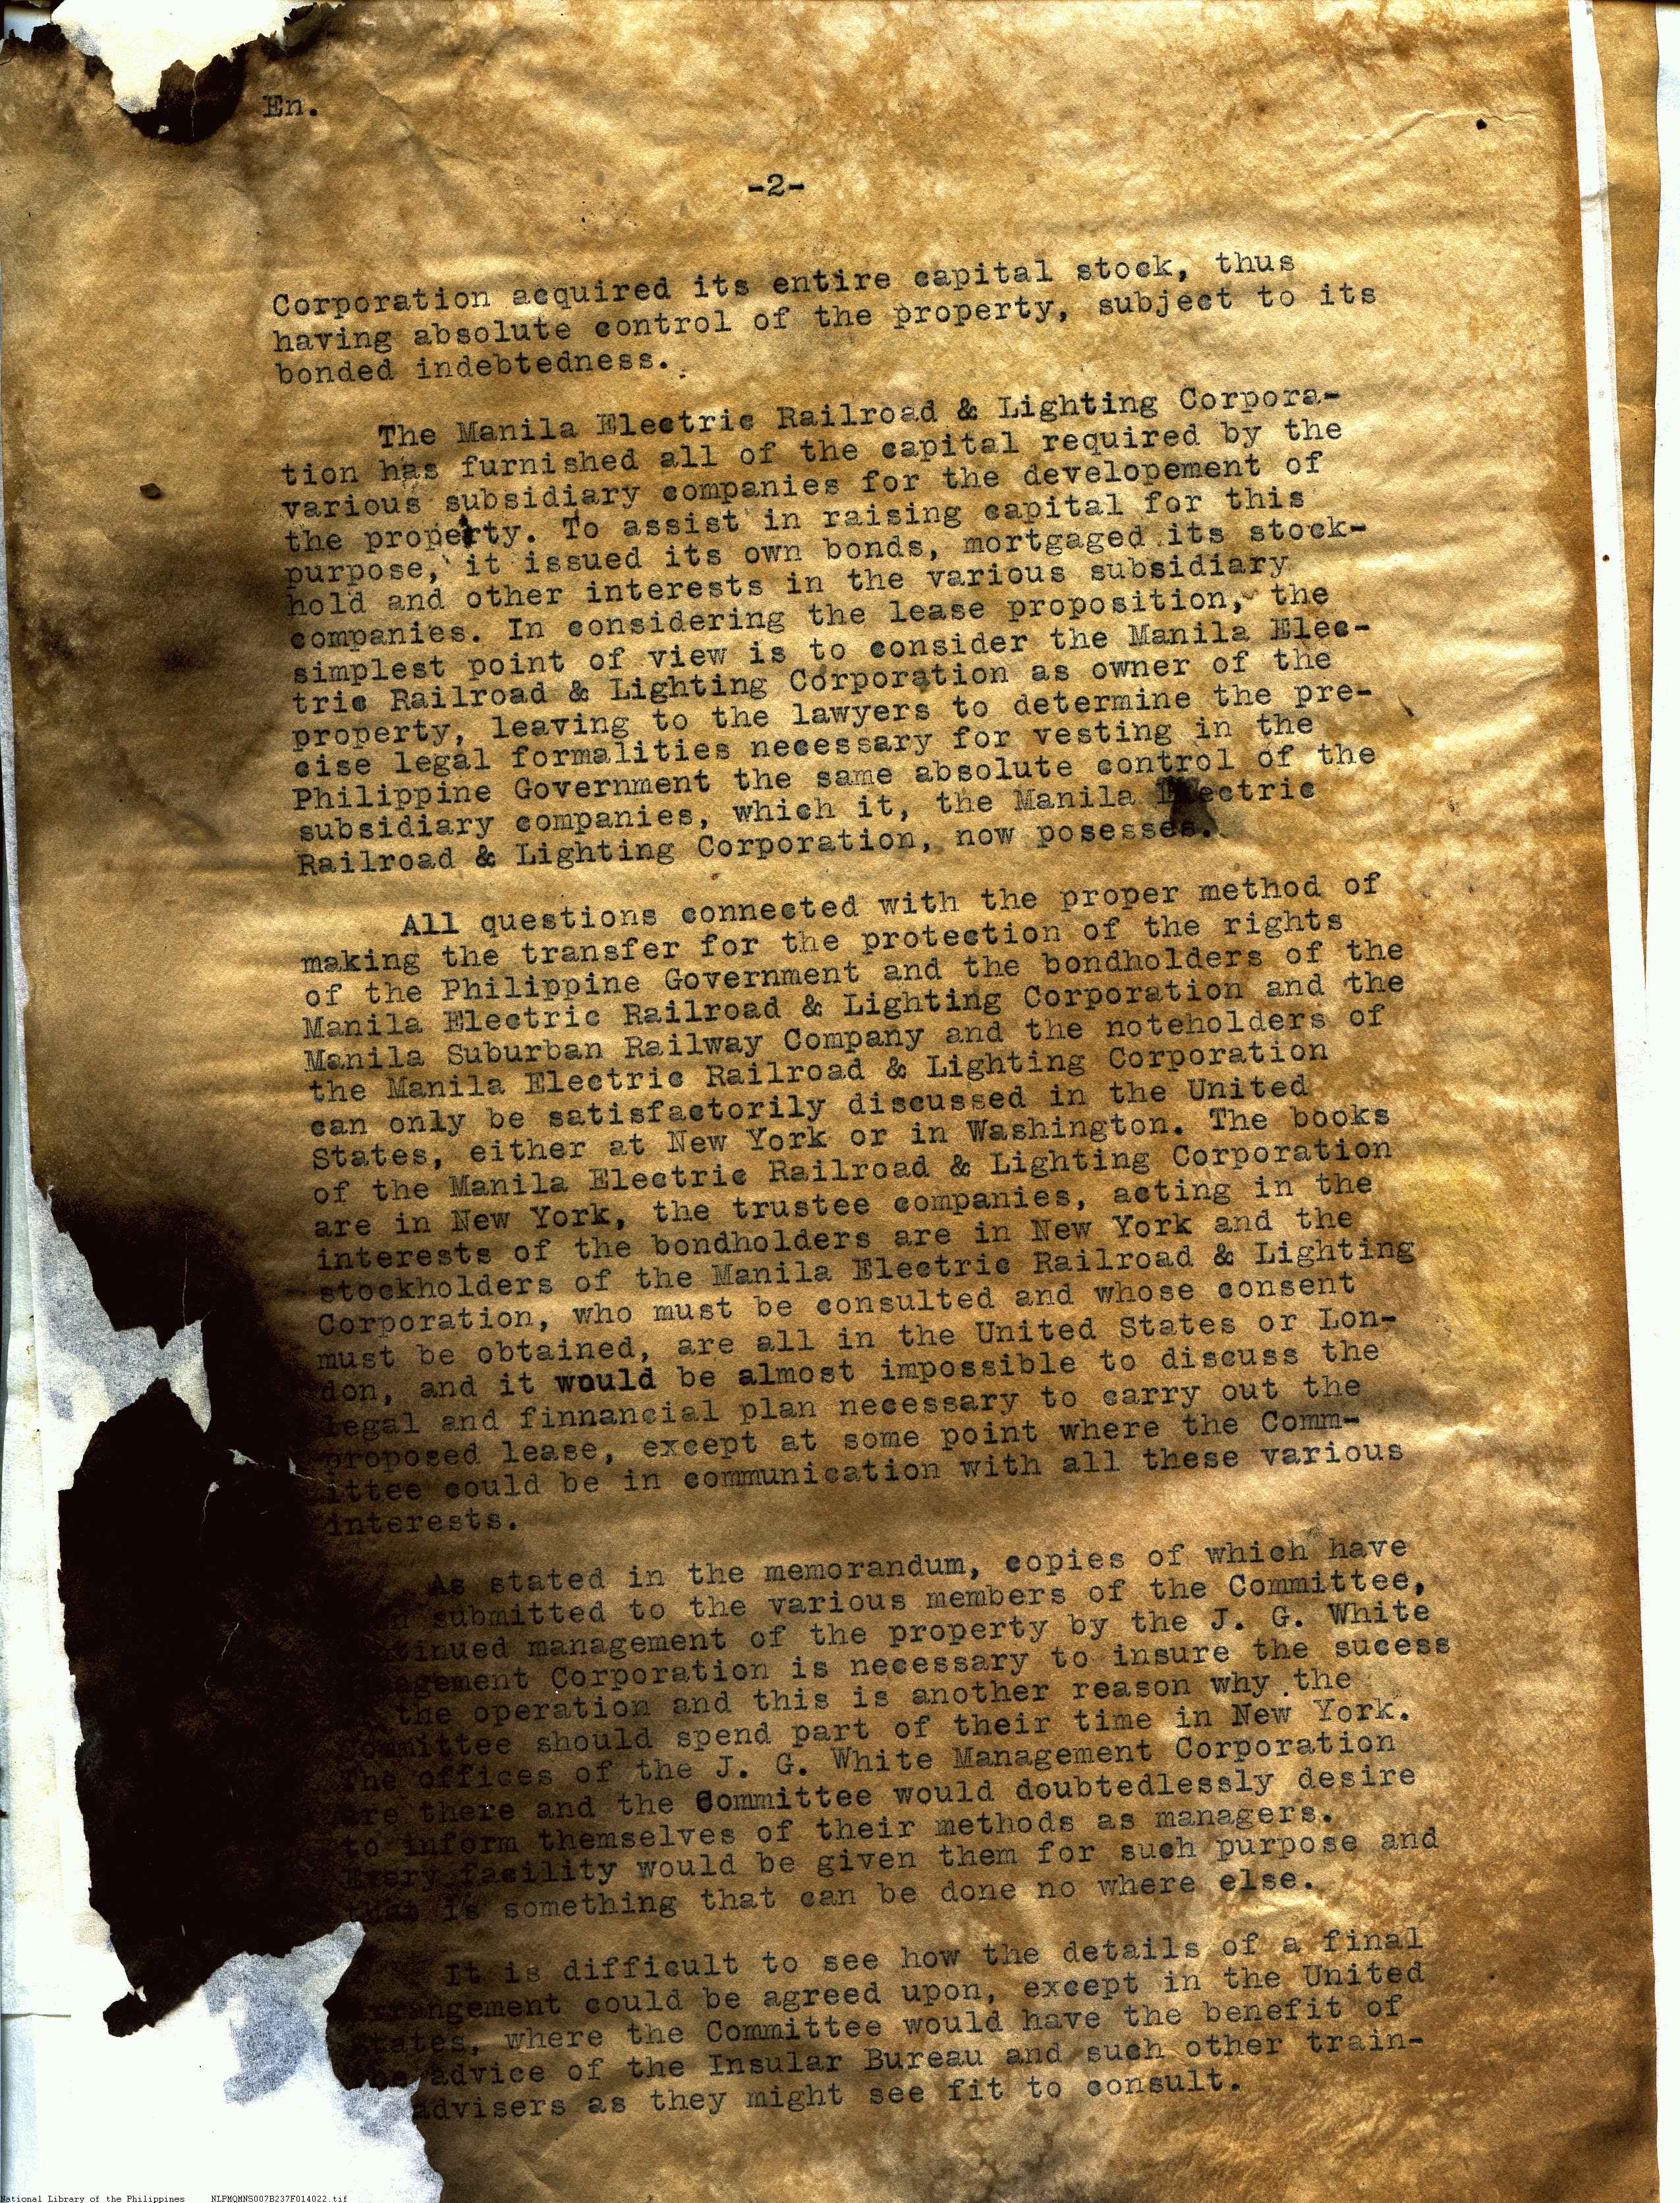 En.
-2-
Corporation acquired its entire capital stock, thus
having absolute control of the property, subject to its
bonded indebtedness.
The Manila Electric Railroad & Lighting Corpora-
tion has furnished all of the capital required by the
various subsidiary companies for the developement of
the property. To assist in raising capital for this
purpose, it issued its own bonds, mortgaged its stock-
hold and other interests in the various subsidiary
companies. In considering the lease proposition, the
simplest point of view is to consider the Manila Elec-
tric Railroad & Lighting Corporation as owner of the
property, leaving to the lawyers to determine the pre-
cise legal formalities necessary for vesting in the
Philippine Government the same absolute control of the
subsidiary companies, which it, the Manila Electric
Railroad & Lighting Corporation, now posesses.
All questions connected with the proper method of
making the transfer for the protection of the rights
of the Philippine Government and the bondholders of the
Manila Electric Railroad & Lighting Corporation and the
Manila Suburban Railway Company and the noteholders of
the Manila Electric Railroad & Lighting Corporation
can only be satisfactorily discussed in the United
States, either at New York or in Washington. The books
of the Manila Electric Railroad & Lighting Corporation
are in New York, the trustee companies, acting in the
interests of the bondholders are in New York and the
stockholders of the Manila Electric Railroad & Lighting
Corporation, who must be consulted and whose consent
must be obtained, are all in the United States or Lon-
don, and it would be almost impossible to discuss the
legal and finnancial plan necessary to carry out the
proposed lease, except at some point where the Comm-
ittee could be in communication with all these various
interests.
As stated in the memorandum, copies of which have
submitted to the various members of the Committee,
tinued management of the property by the J. G. White
agement Corporation is necessary to insure the sucess
the operation and this is another reason why the
Committee should spend part of their time in New York.
The offices of the J. G. White Management Corporation
are there and the Committee would doubtedlessly desire
to inform themselves of their methods as managers.
Every facility would be given them for such purpose and
that is something that can be done no where else.
It is difficult to see how the details of a final
arrangement could be agreed upon, except in the United
States, where the Committee would have the benefit of
the advice of the Insular Bureau and such other train-
advisers as they might see fit to consult.
National Library of the Philippines NLPMQMNS007B237F014022.tif